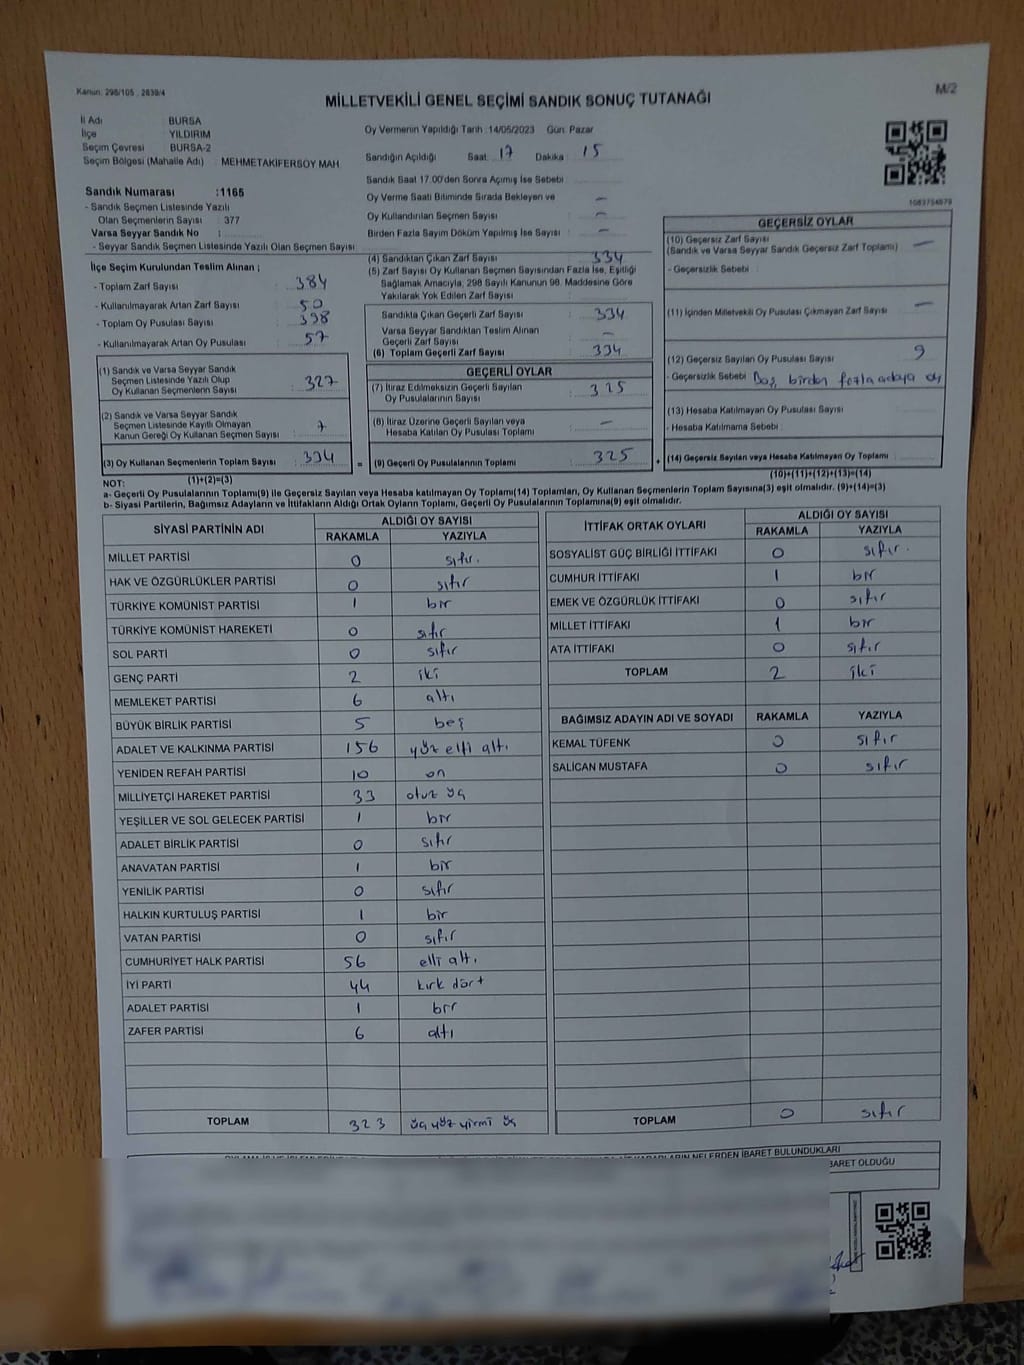 Kanun: 298/105 , 2839/4
M/2
MİLLETVEKİLİ GENEL SEÇİMİ SANDIK SONUÇ TUTANAĞI
İl Adı BURSA
İlçe YILDIRIM
Seçim Çevresi BURSA-2
Seçim Bölgesi (Mahalle Adı) : MEHMETAKİFERSOY MAH
Sandık Numarası :1165
- Sandık Seçmen Listesinde Yazılı
Olan Seçmenlerin Sayısı : 377
Varsa Seyyar Sandık No :
- Seyyar Sandık Seçmen Listesinde Yazılı Olan Seçmen Sayısı :
Oy Vermenin Yapıldığı Tarih :14/05/2023 Gün: Pazar
Sandığın Açıldığı Saat 17 Dakika 15
Sandık Saat 17.00'den Sonra Açımış İse Sebebi
Oy Verme Saati Bitiminde Sırada Bekleyen ve –
Oy Kullandırılan Seçmen Sayısı –
Birden Fazla Sayım Döküm Yapılmış İse Sayısı –
İlçe Seçim Kurulundan Teslim Alınan ;
- Toplam Zarf Sayısı : 384
- Kullanılmayarak Artan Zarf Sayısı : 50
- Toplam Oy Pusulası Sayısı : 398
- Kullanılmayarak Artan Oy Pusulası : 57
(1) Sandık ve Varsa Seyyar Sandık
Seçmen Listesinde Yazılı Olup
Oy Kullanan Seçmenlerin Sayısı : 327
(2) Sandık ve Varsa Seyyar Sandık
Seçmen Listesinde Kayıtlı Olmayan
Kanun Gereği Oy Kullanan Seçmen Sayısı : 7
(3) Oy Kullanan Seçmenlerin Toplam Sayısı : 334
(1)+(2)=(3)
(4) Sandıktan Çıkan Zarf Sayısı : 334
(5) Zarf Sayısı Oy Kullanan Seçmen Sayısından Fazla İse, Eşitliği
Sağlamak Amacıyla, 298 Sayılı Kanunun 98. Maddesine Göre
Yakılarak Yok Edilen Zarf Sayısı :
Sandıkla Çıkan Geçerli Zarf Sayısı : 334
Varsa Seyyar Sandıktan Teslim Alınan
Geçerli Zarf Sayısı : –
(6) Toplam Geçerli Zarf Sayısı : 334
GEÇERLİ OYLAR
(7) İtiraz Edilmeksizin Geçerli Sayılan
Oy Pusulalarının Sayısı : 325
(8) İtiraz Üzerine Geçerli Sayılan veya
Hesaba Katılan Oy Pusulası Toplamı : –
= (9) Geçerli Oy Pusulalarının Toplamı : 325 +
GEÇERSİZ OYLAR
(10) Geçersiz Zarf Sayısı
(Sandık ve Varsa Seyyar Sandık Geçersiz Zarf Toplamı) –
- Geçersizlik Sebebi :
(11) İçinden Milletvekili Oy Pusulası Çıkmayan Zarf Sayısı –
(12) Geçersiz Sayılan Oy Pusulası Sayısı 9
- Geçersizlik Sebebi : Boş, birden fazla adaya oy
(13) Hesaba Katılmayan Oy Pusulası Sayısı
- Hesaba Katılmama Sebebi :
(14) Geçersiz Sayılan veya Hesaba Katılmayan Oy Toplamı :
(10)+(11)+(12)+(13)=(14)
NOT:
a- Geçerli Oy Pusulalarının Toplamı(9) ile Geçersiz Sayılan veya Hesaba katılmayan Oy Toplamı(14) Toplamları, Oy Kullanan Seçmenlerin Toplam Sayısına(3) eşit olmalıdır. (9)+(14)=(3)
b- Siyasi Partilerin, Bağımsız Adayların ve İttifakların Aldığı Ortak Oyların Toplamı, Geçerli Oy Pusulalarının Toplamına(9) eşit olmalıdır.
SİYASİ PARTİNİN ADI ALDIĞI OY SAYISI
RAKAMLA YAZIYLA
MİLLET PARTİSİ 0 sıfır.
HAK VE ÖZGÜRLÜKLER PARTİSİ 0 sıfır
TÜRKİYE KOMÜNİST PARTİSİ 1 bir
TÜRKİYE KOMÜNİST HAREKETİ 0 sıfır
SOL PARTİ 0 sıfır
GENÇ PARTİ 2 iki
MEMLEKET PARTİSİ 6 altı
BÜYÜK BİRLİK PARTİSİ 5 beş
ADALET VE KALKINMA PARTİSİ 156 yüz elli altı
YENİDEN REFAH PARTİSİ 10 on
MİLLİYETÇİ HAREKET PARTİSİ 33 otuz üç
YEŞİLLER VE SOL GELECEK PARTİSİ 1 bir
ADALET BİRLİK PARTİSİ 0 sıfır
ANAVATAN PARTİSİ 1 bir
YENİLİK PARTİSİ 0 sıfır
HALKIN KURTULUŞ PARTİSİ 1 bir
VATAN PARTİSİ 0 sıfır
CUMHURİYET HALK PARTİSİ 56 elli altı
İYİ PARTİ 44 kırk dört
ADALET PARTİSİ 1 bir
ZAFER PARTİSİ 6 altı
TOPLAM 323 üç yüz yirmi üç
İTTİFAK ORTAK OYLARI ALDIĞI OY SAYISI
RAKAMLA YAZIYLA
SOSYALİST GÜÇ BİRLİĞİ İTTİFAKI 0 sıfır.
CUMHUR İTTİFAKI 1 bir
EMEK VE ÖZGÜRLÜK İTTİFAKI 0 sıfır
MİLLET İTTİFAKI 1 bir
ATA İTTİFAKI 0 sıfır
TOPLAM 2 iki
BAĞIMSIZ ADAYIN ADI VE SOYADI RAKAMLA YAZIYLA
KEMAL TÜFENK 0 sıfır
SALİCAN MUSTAFA 0 sıfır
TOPLAM 0 sıfır
NELERDEN İBARET BULUNDUKLARI
BARET OLDUĞU